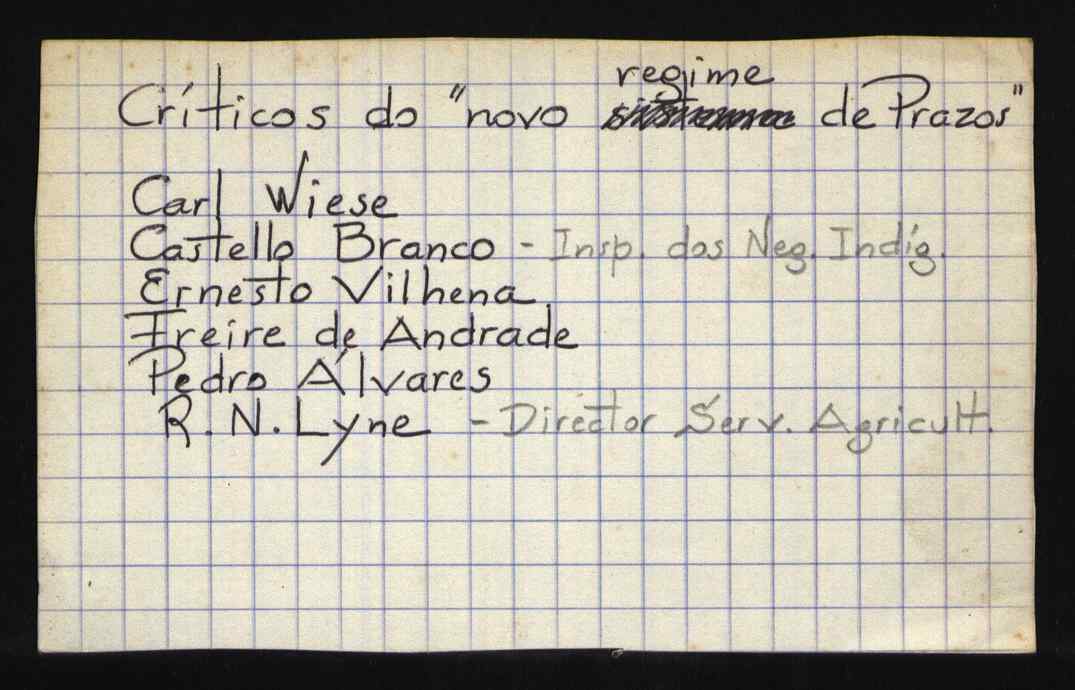 Críticos do "novo regime de Prazos"
Carl Wiese
Castello Branco - Insp. dos Neg. Indíg.
Ernesto Vilhena
Freire de Andrade
Pedro Álvares
R. N. Lyne - Director Serv. Agricult.